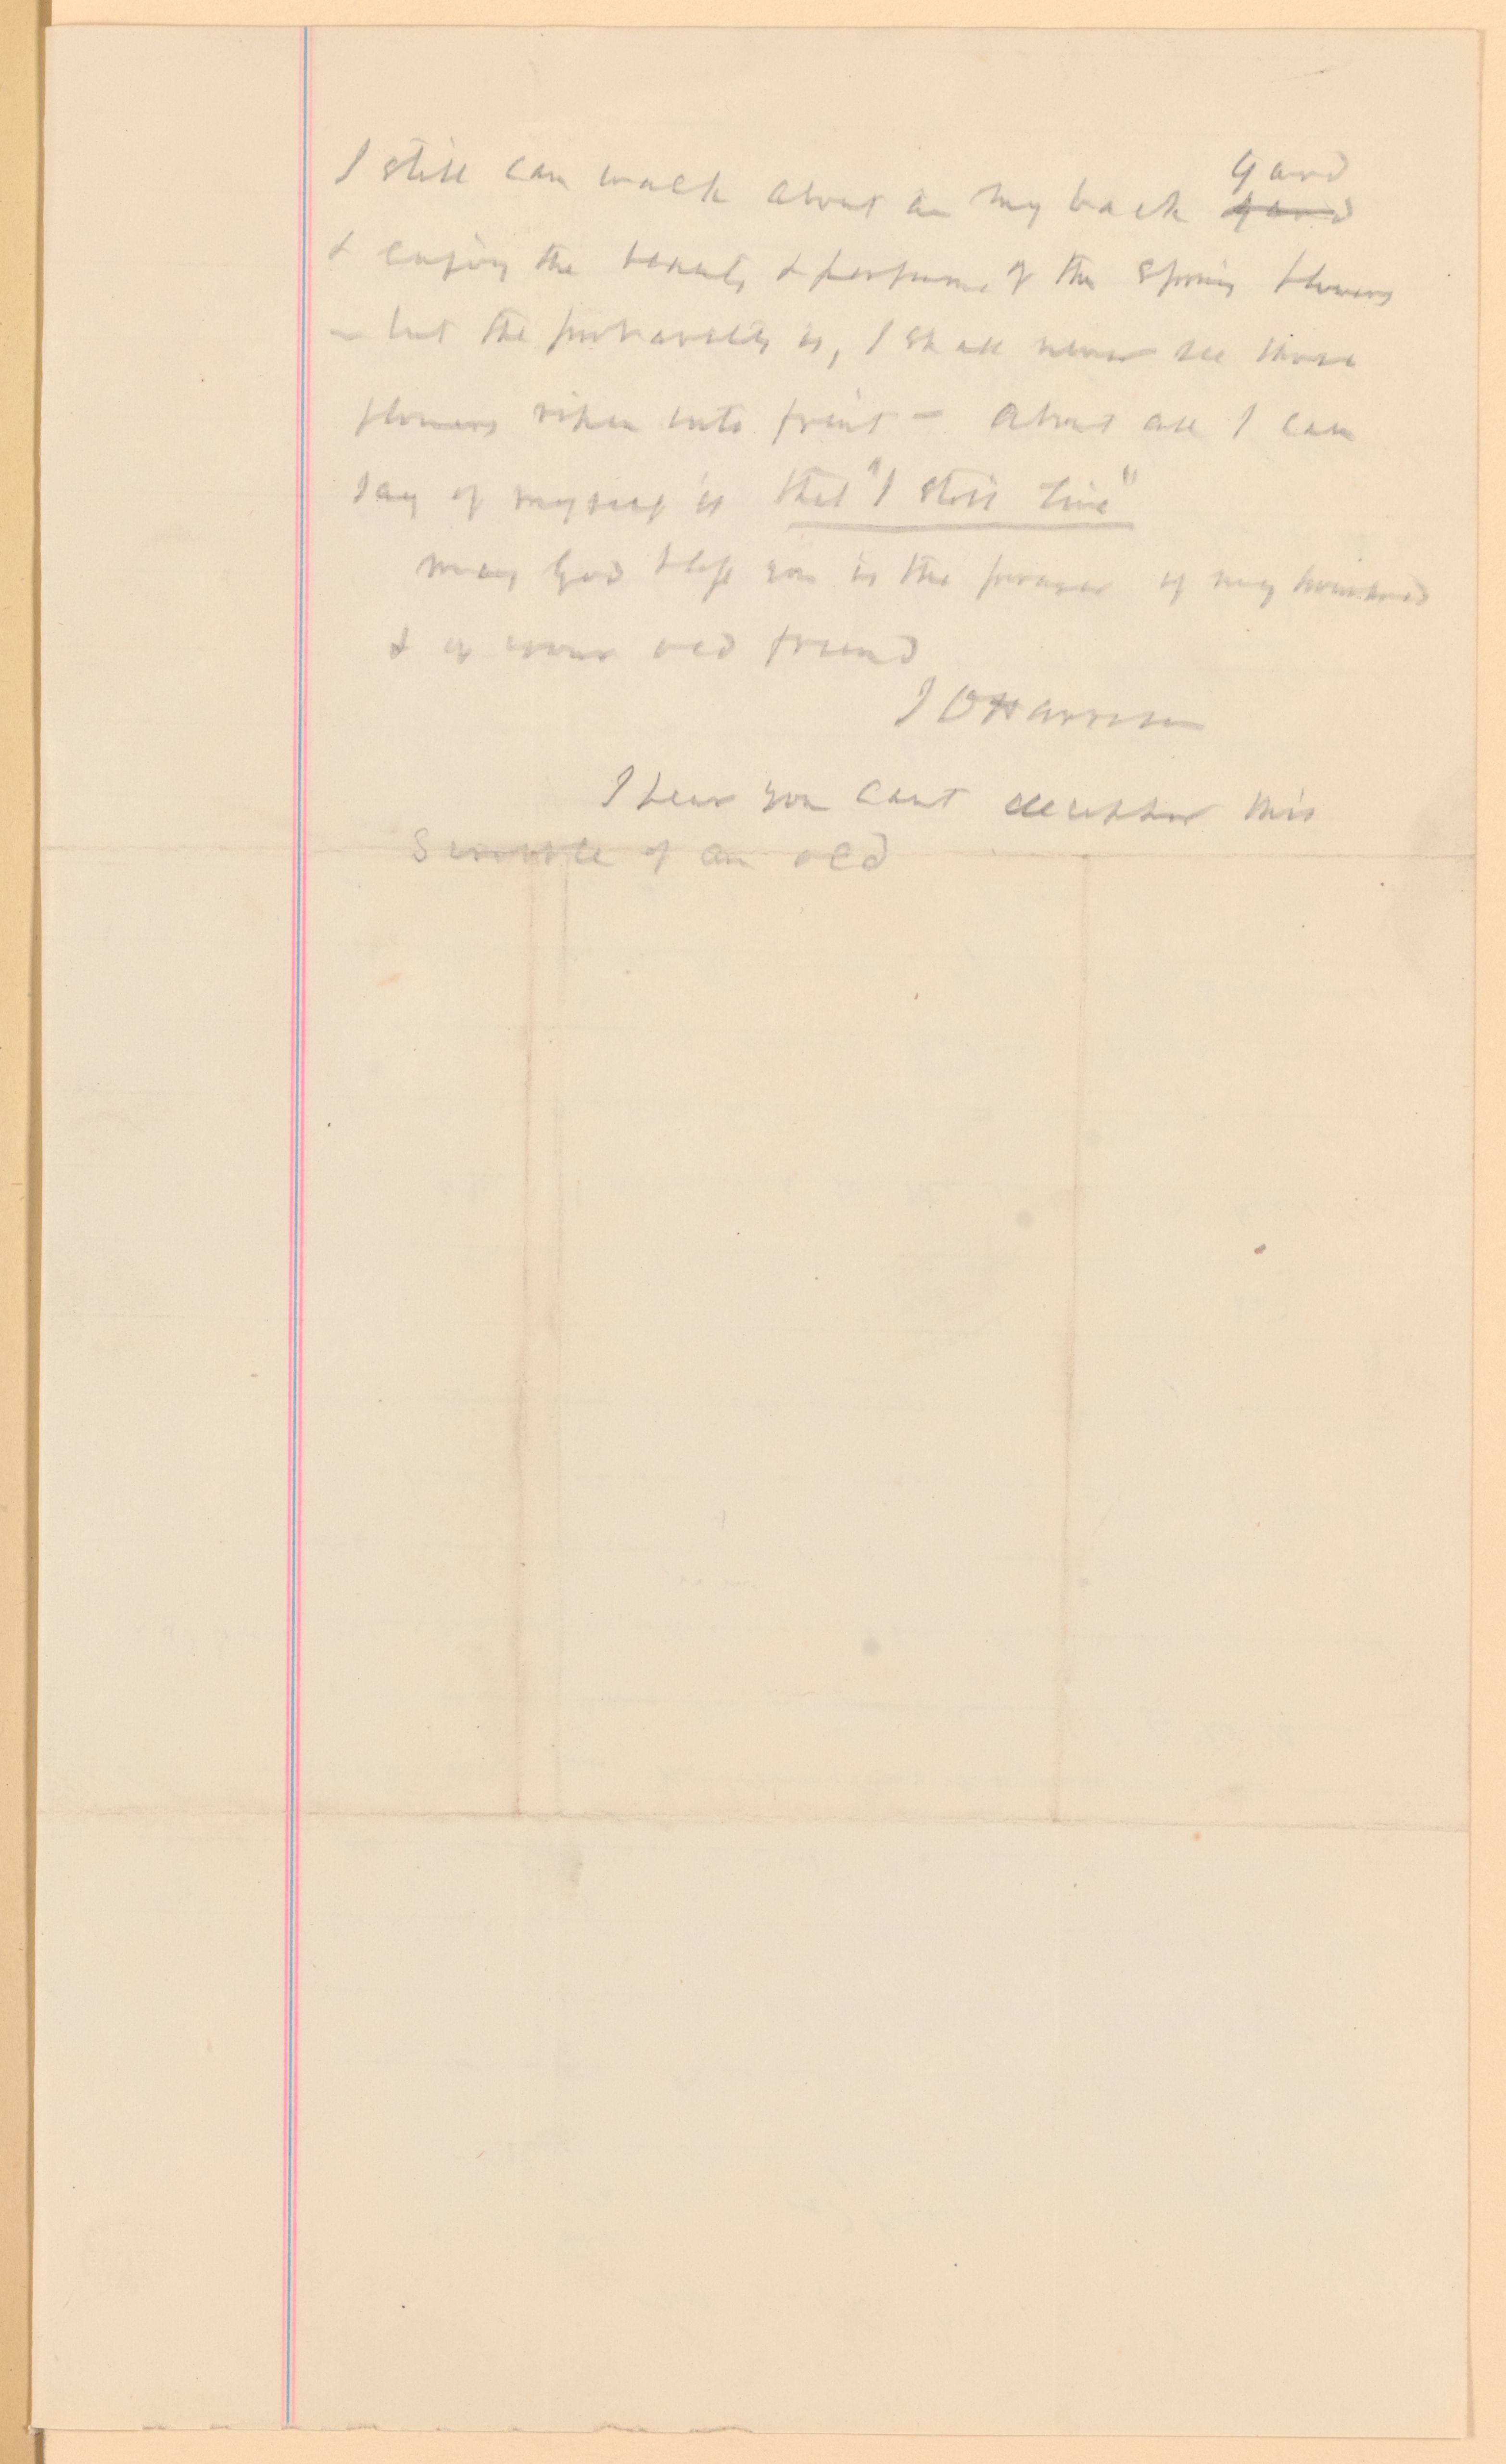 I still can walk about in my back yard
yard
& enjoy the beauty & perfume of the spring flowers
- but the probability is, I shall never see those
flowers ripen into fruit - About all I can
say of myself is that "I still live"
may God bless you is the prayer of my
& of your old friend
J O Harrison
I fear you cant decipher this
scribble of an old